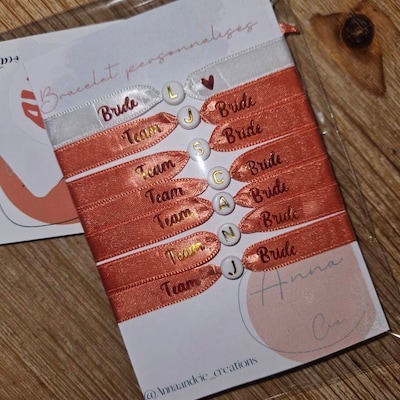 Bracelet personnalisés
Bride L
Team J Bride
Team S Bride
Team C Bride
Team A Bride
Team N Bride
Team J Bride
Anna
Cie
@Annaandcie_creations